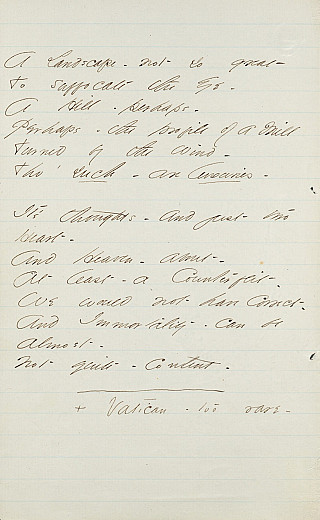 A Landscape - not so great -
To suffocate the Eye -
A Hill - perhaps -
Perhaps - the profile of a Mill
Turned by the Wind -
Tho' such - are luxuries -
It's thoughts - and just two
Heart -
And Heaven - about -
At least - a Counterfeit -
We would not have Correct -
And Immortality - can be
almost -
Not quite - Content -
+ Vatican - too rare -